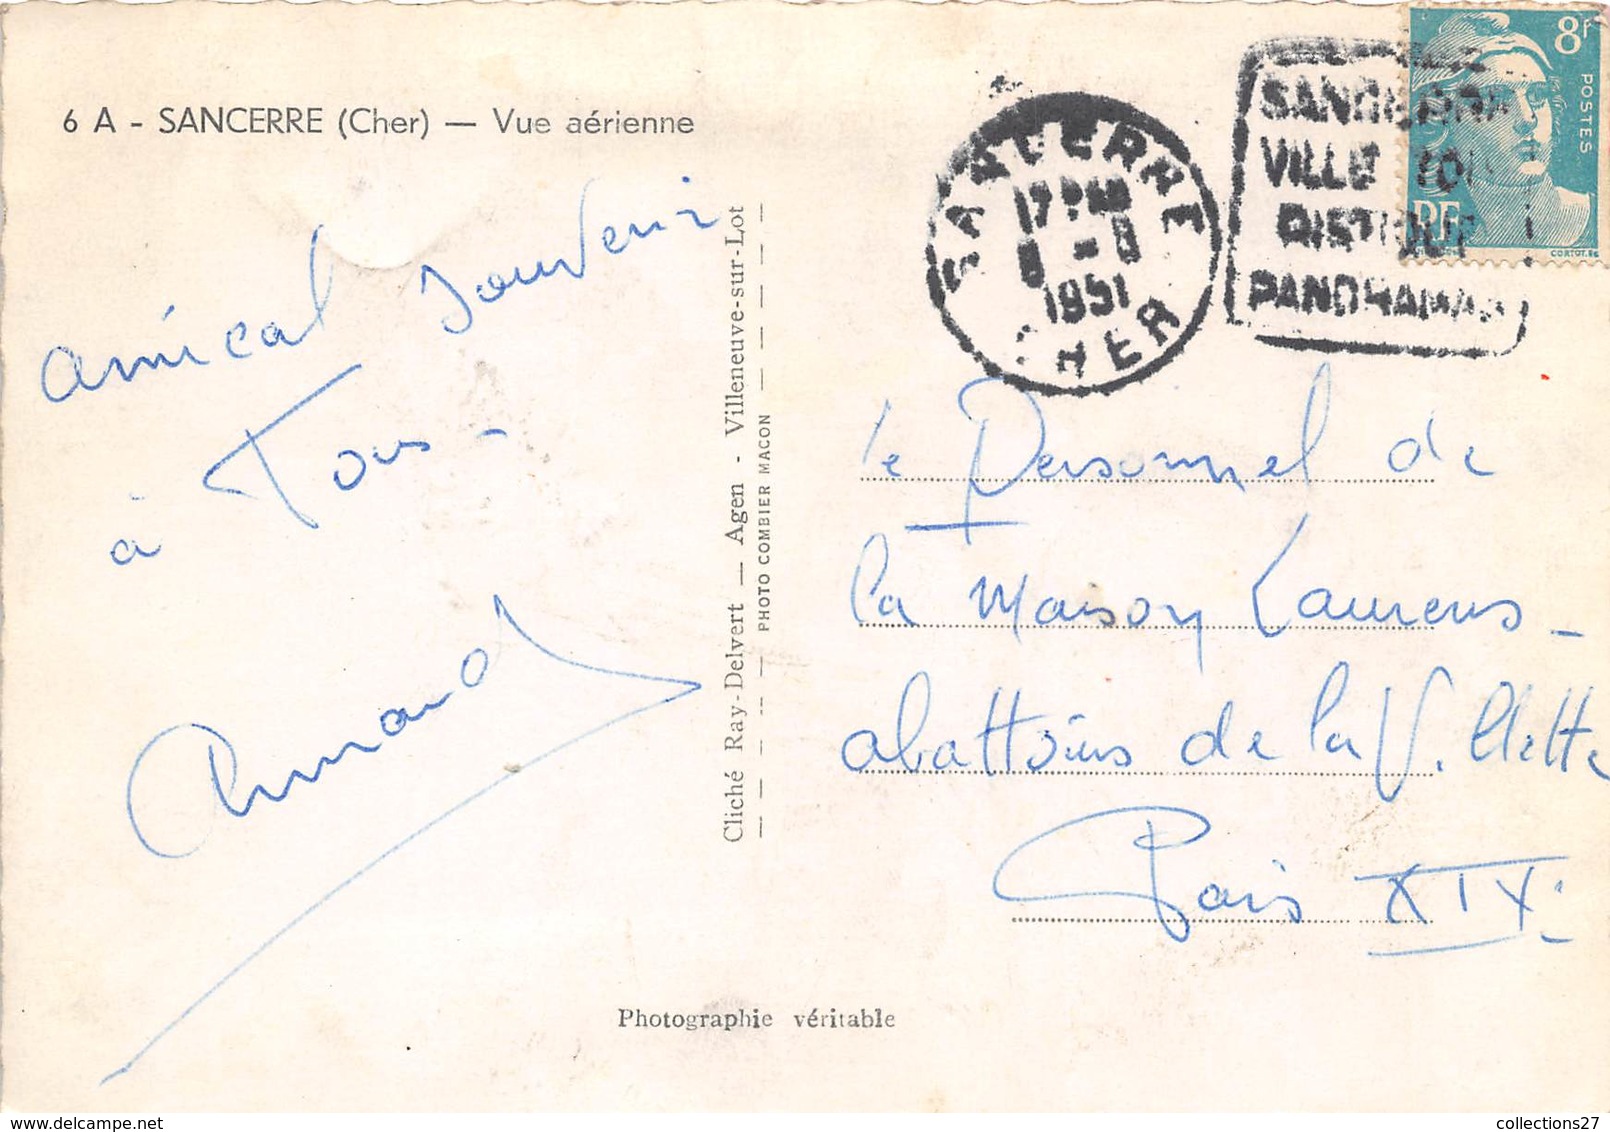 6 A - SANCERRE (Cher) — Vue aérienne
amical souvenir
à Tous -
Armand
Cliché Ray-Delvert — Agen - Villeneuve-sur-Lot
PHOTO COMBIER MACON
SANCERRE
1951
CHER
SANCERRE
VILLE
PANORAMAS
8f
POSTES
RF
CORTOT
le Personnel de
la Maison Laurens -
abattoirs de la Villette
Paris XIX
Photographie véritable
collections27